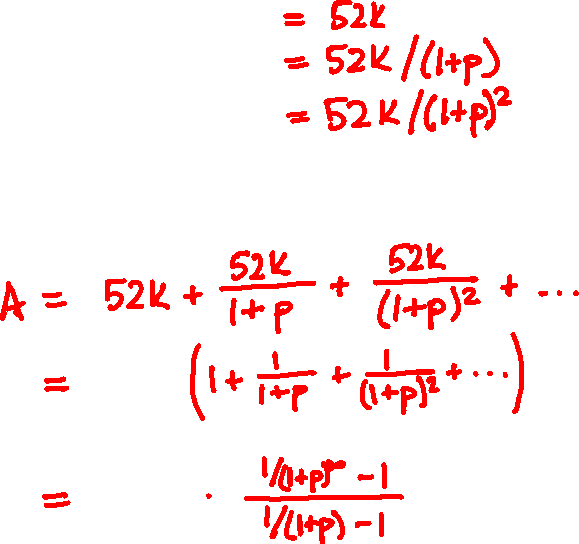 = 52K
= 52K/(1+p)
= 52K/(1+p)²
A = 52K + 52K/1+p + 52K/(1+p)² + ...
= (1 + 1/1+p + 1/(1+p)² + ...)
= · 1/(1+p) - 1 / 1/(1+p) - 1